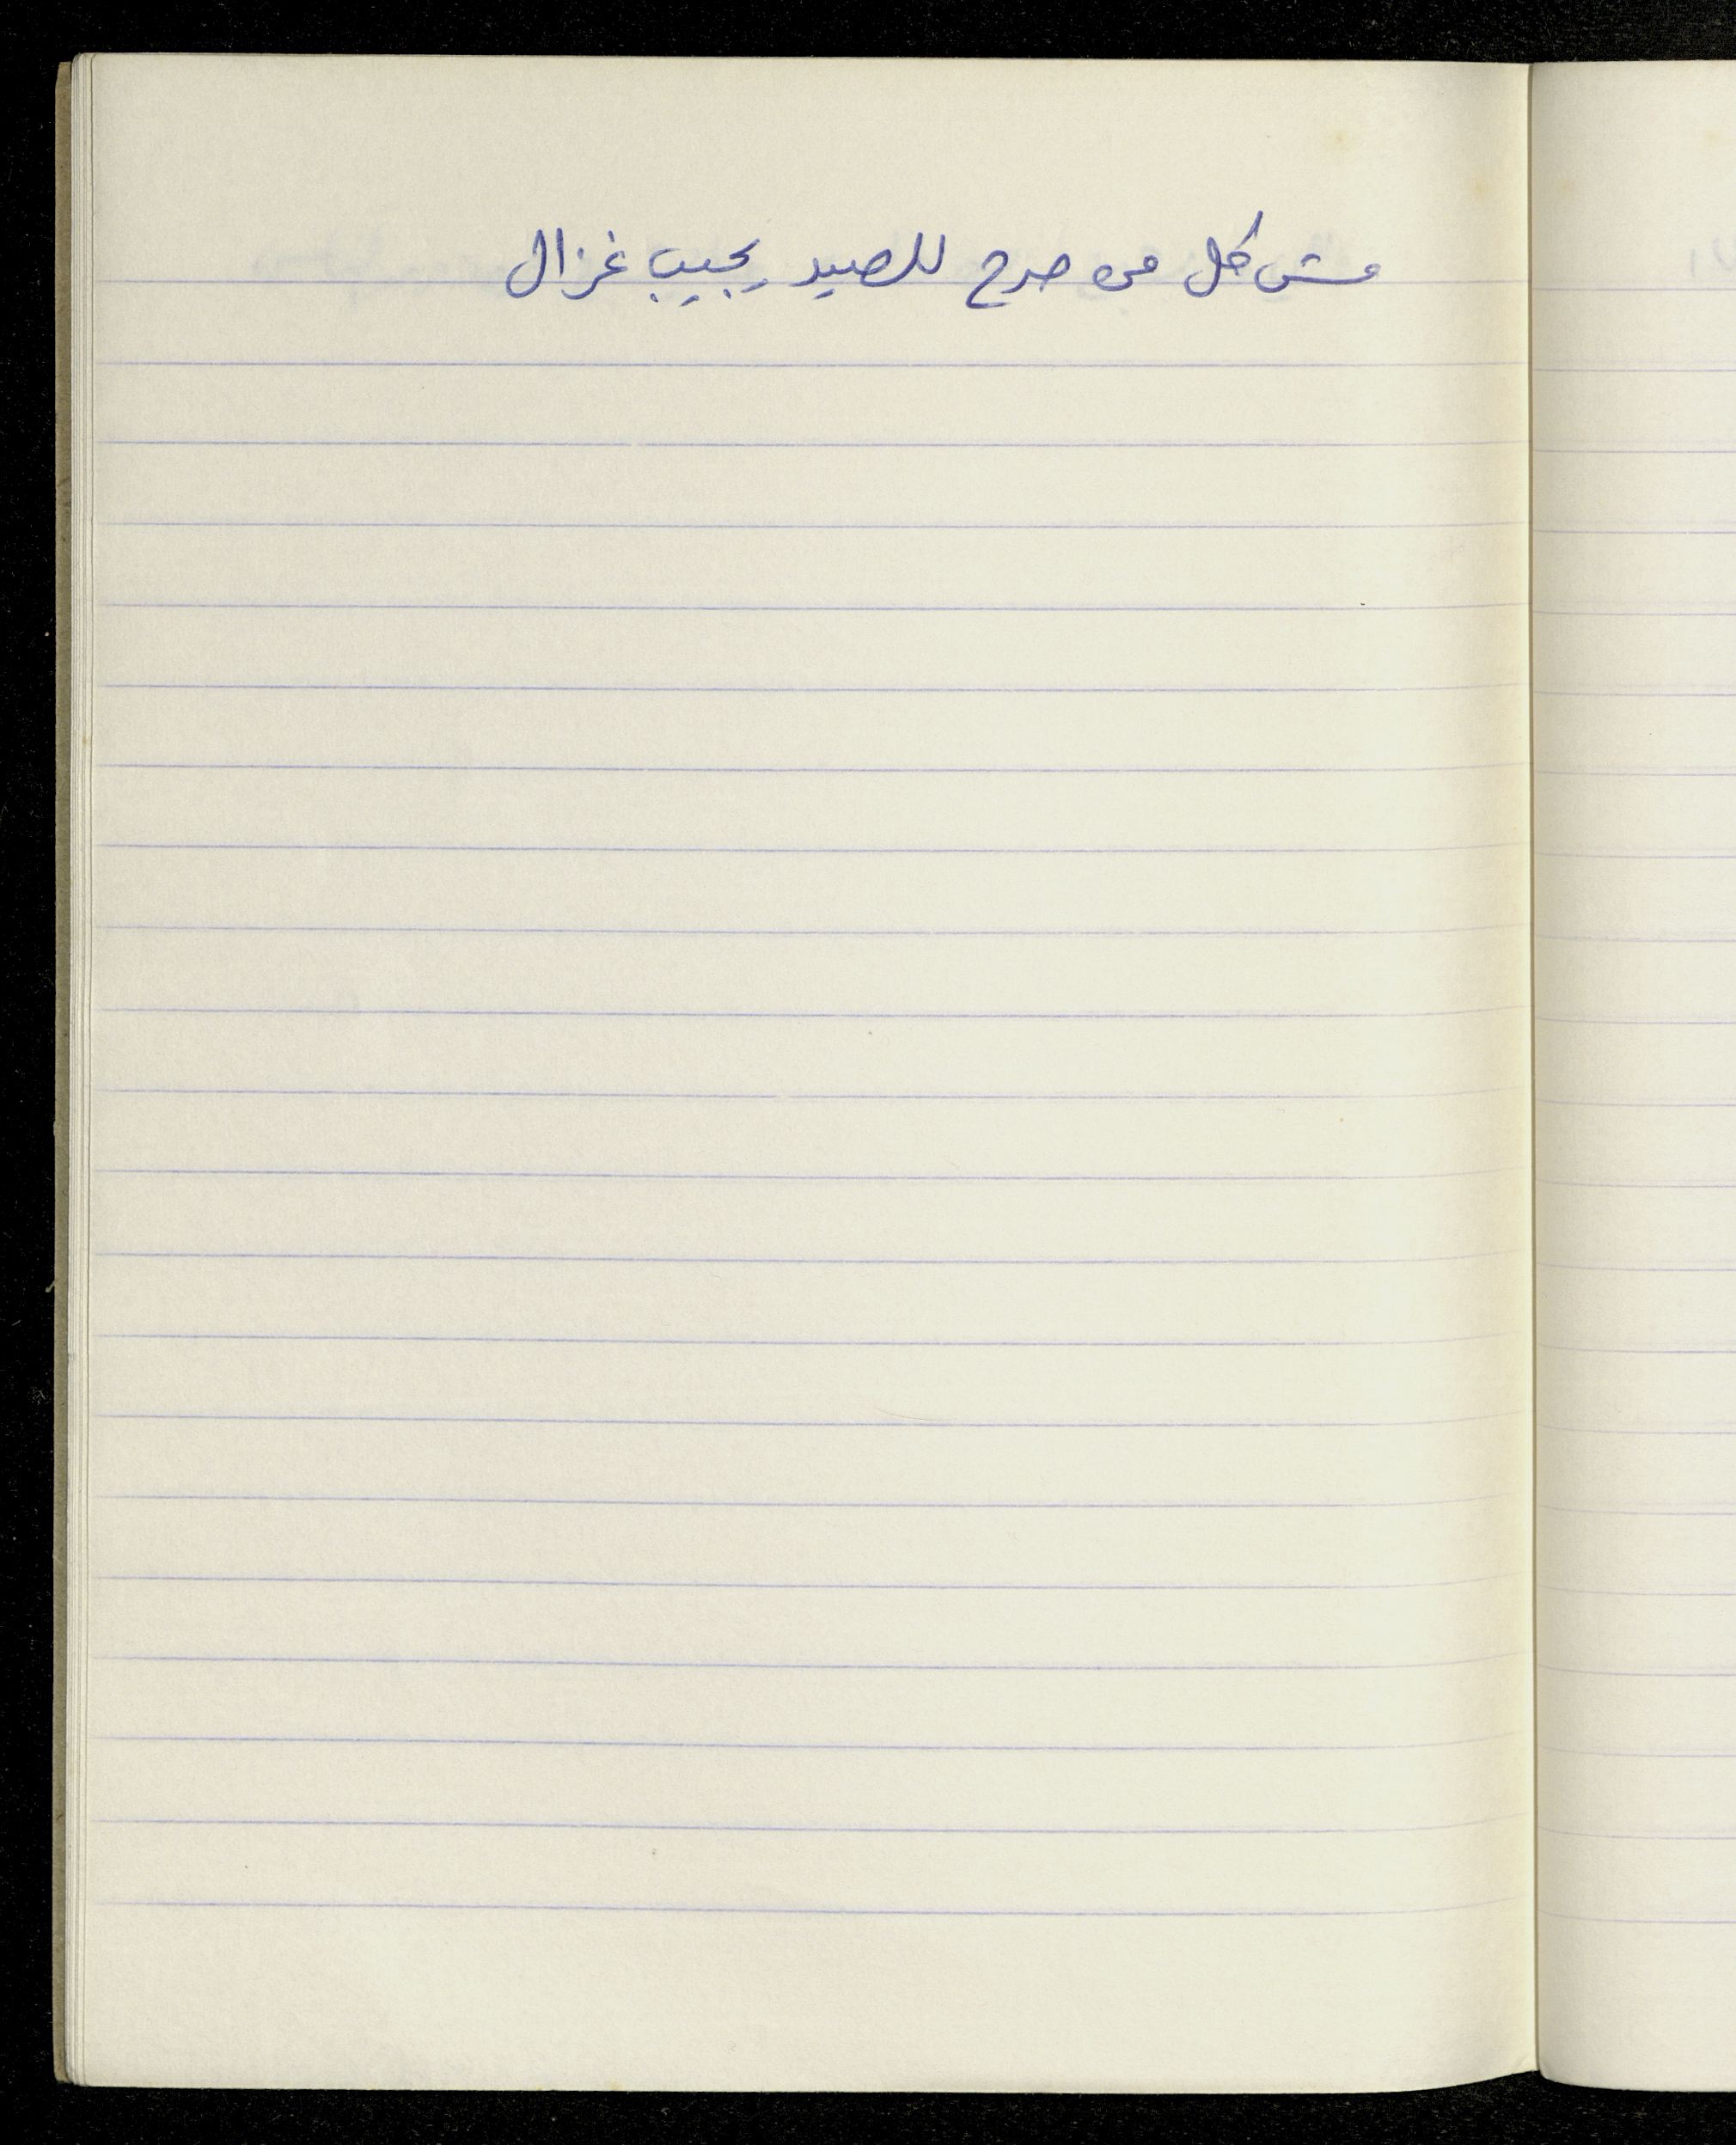 مش كل من صرح للصيد يجيب غزال